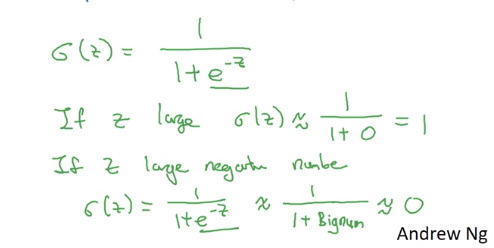 σ(z) = 1 / (1 + e^{-z})
If z large σ(z) ≈ 1 / (1 + 0) = 1
If z large negative number
σ(z) = 1 / (1 + e^{-z}) ≈ 1 / (1 + Bignum) ≈ 0
Andrew Ng